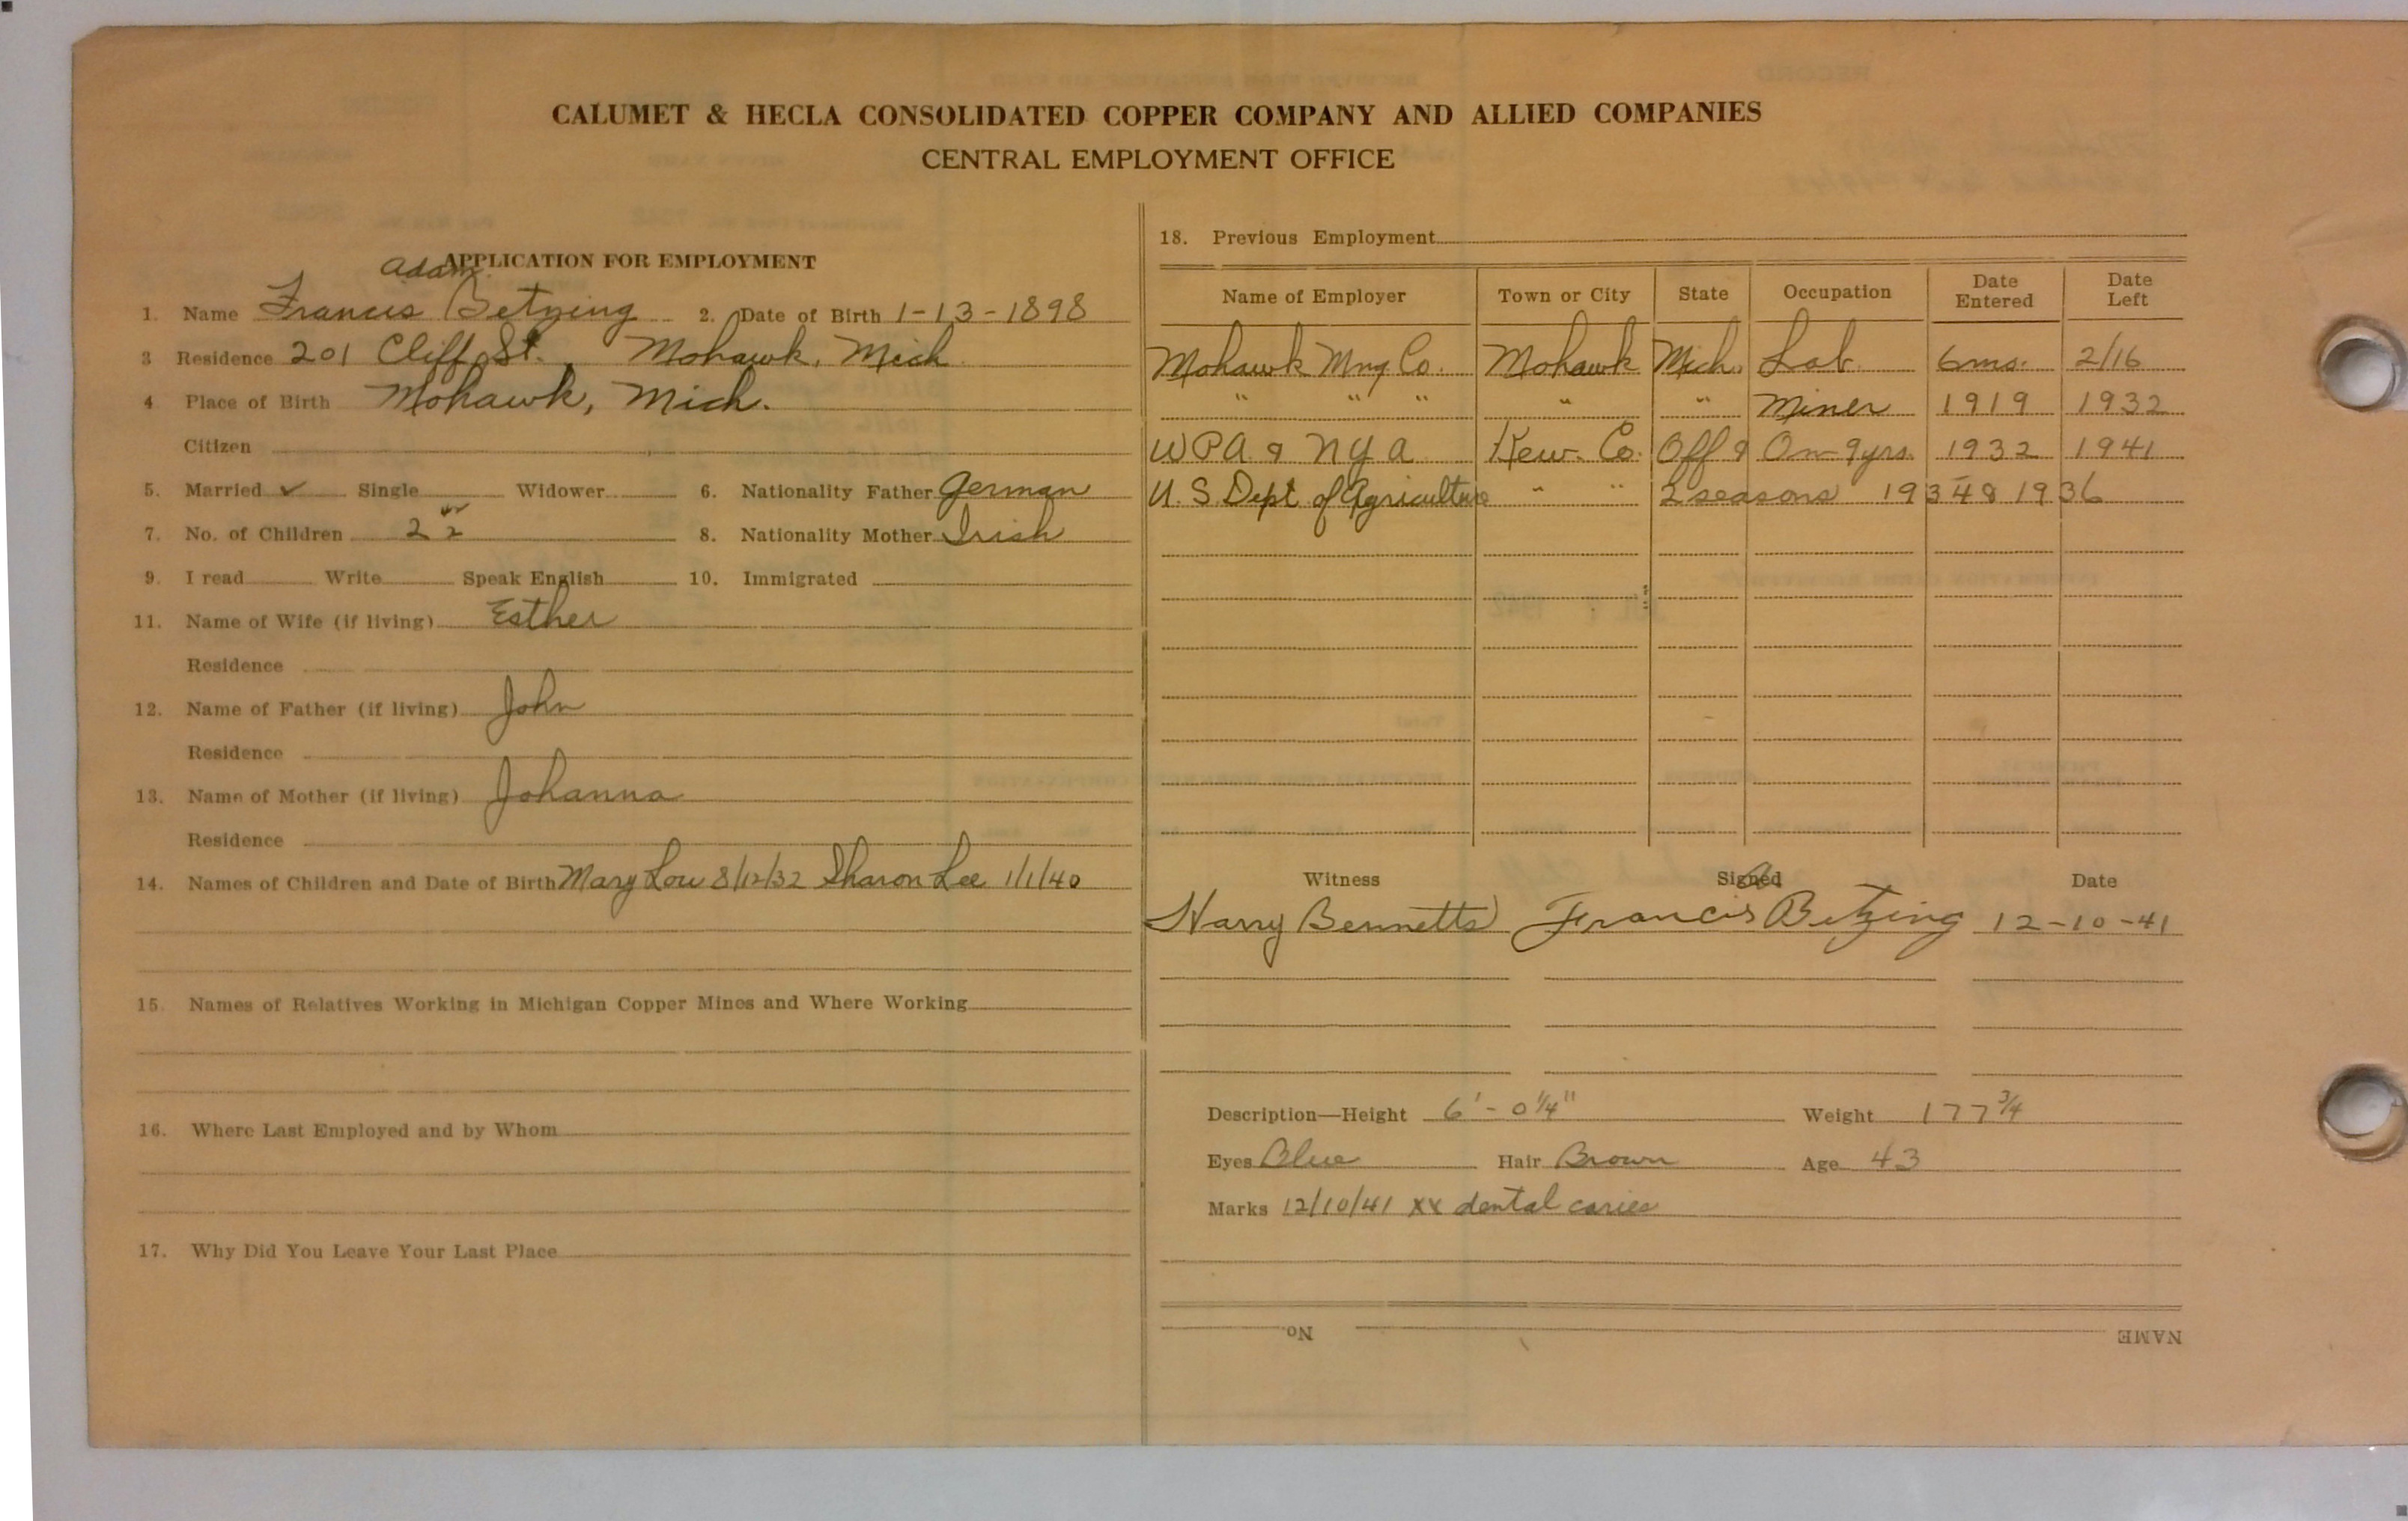 CALUMET & HECLA CONSOLIDATED COPPER COMPANY AND ALLIED COMPANIES
CENTRAL EMPLOYMENT OFFICE
APPLICATION FOR EMPLOYMENT
Adam
1. Name Francis Betzing 2. Date of Birth 1-13-1898
3 Residence 201 Cliff St. Mohawk, Mich
4 Place of Birth Mohawk, Mich.
Citizen
5. Married ✓ Single Widower 6. Nationality Father German
7. No. of Children 2 8. Nationality Mother Irish
9. I read Write Speak English 10. Immigrated
11. Name of Wife (if living) Esther
Residence
12. Name of Father (if living) John
Residence
13. Name of Mother (if living) Johanna
Residence
14. Names of Children and Date of Birth Mary Lou 8/12/32 Sharon Lee 1/1/40
15. Names of Relatives Working in Michigan Copper Mines and Where Working
16. Where Last Employed and by Whom
17. Why Did You Leave Your Last Place
18. Previous Employment
Name of Employer Town or City State Occupation Date Entered Date Left
Mohawk Mng Co. Mohawk Mich. Lab. 6 mo. 2/16
" " " " " Miner 1919 1932
WPA & NYA Kew. Co. Off & On 9 yrs. 1932 1941
U. S. Dept of Agriculture " " 2 seasons 1936
Witness Signed Date
A
Harry Bennetts Francis Betzing 12-10-41
Description—Height 6'-0¼" Weight 177¾
Eyes Blue Hair Brown Age 43
Marks 12/10/41 xx dental caries
No. NAME